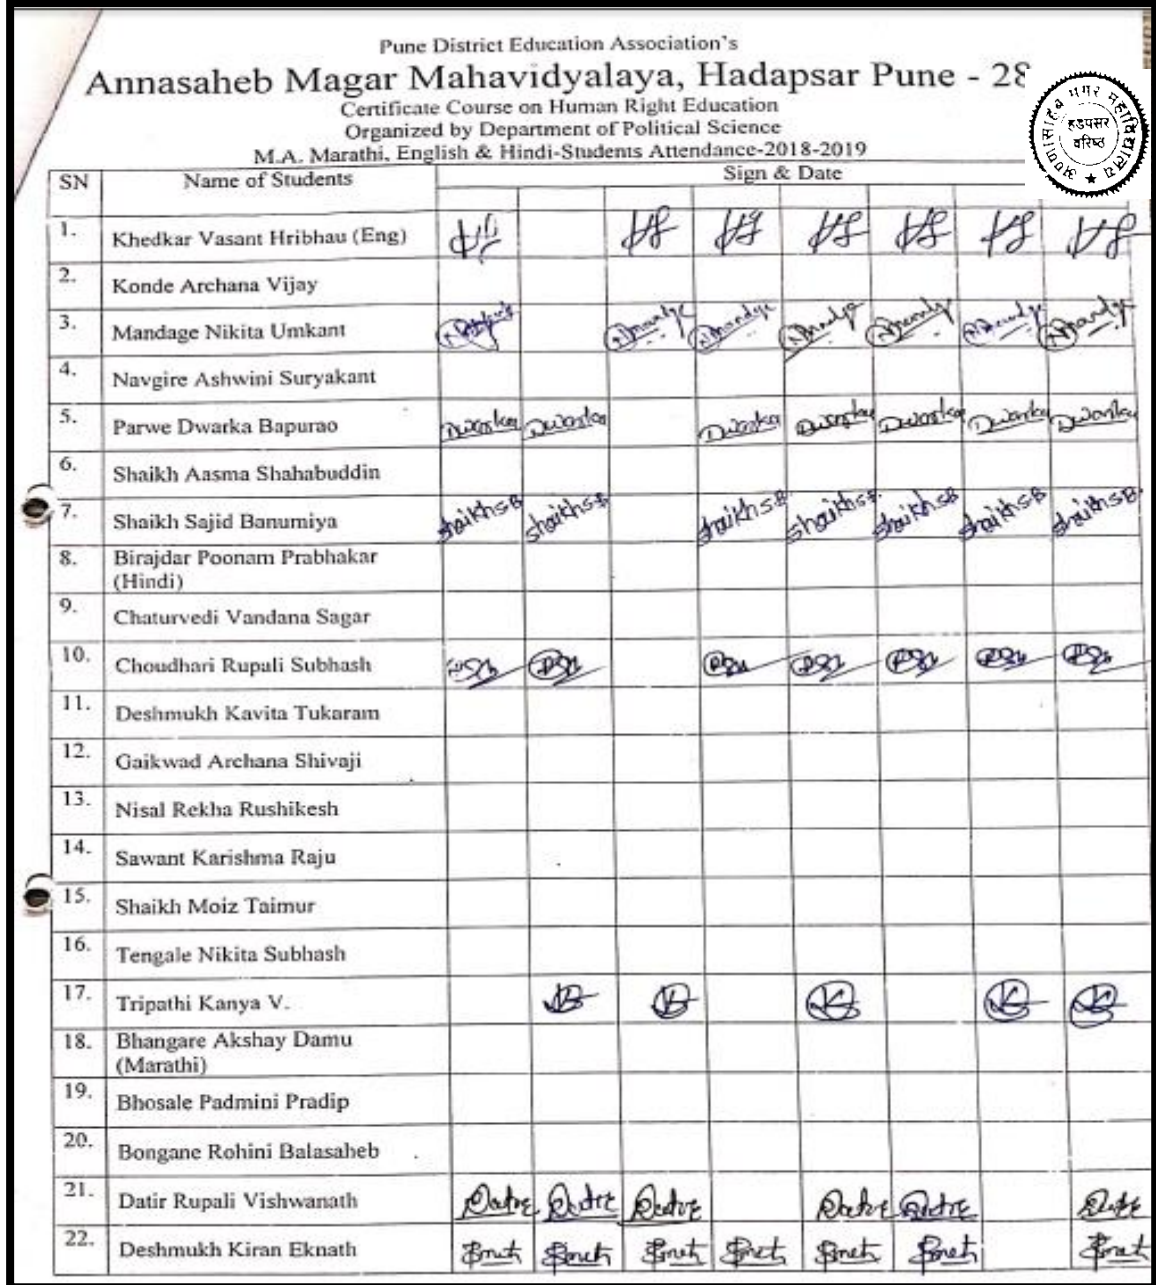 Pune District Education Association's
Annasaheb Magar Mahavidyalaya, Hadapsar Pune - 28
Certificate Course on Human Right Education
Organized by Department of Political Science
M.A. Marathi, English & Hindi-Students Attendance-2018-2019
अण्णासाहेब मगर महाविद्यालय
हडपसर
वरिष्ठ
SN Name of Students Sign & Date
1. Khedkar Vasant Hribhau (Eng)
2. Konde Archana Vijay
3. Mandage Nikita Umkant
4. Navgire Ashwini Suryakant
5. Parwe Dwarka Bapurao Dwarka Dwarka Dwarka Dwarka Dwarka Dwarka Dwarka
6. Shaikh Aasma Shahabuddin
7. Shaikh Sajid Banumiya Shaikh S B Shaikh S B Shaikh S B Shaikh S B Shaikh S B Shaikh S B Shaikh S B
8. Birajdar Poonam Prabhakar
(Hindi)
9. Chaturvedi Vandana Sagar
10. Choudhari Rupali Subhash
11. Deshmukh Kavita Tukaram
12. Gaikwad Archana Shivaji
13. Nisal Rekha Rushikesh
14. Sawant Karishma Raju
15. Shaikh Moiz Taimur
16. Tengale Nikita Subhash
17. Tripathi Kanya V.
18. Bhangare Akshay Damu
(Marathi)
19. Bhosale Padmini Pradip
20. Bongane Rohini Balasaheb
21. Datir Rupali Vishwanath
22. Deshmukh Kiran Eknath